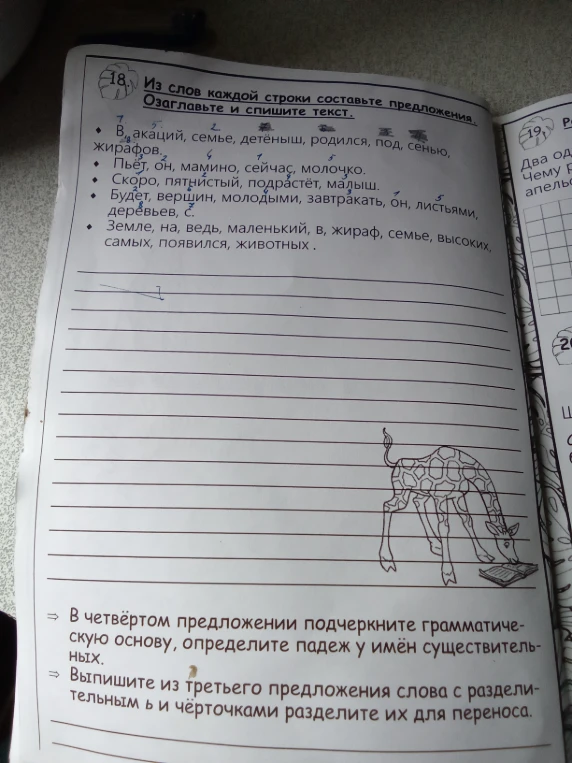 18.
Из слов каждой строки составьте предложения.
Озаглавьте и спишите текст.
• В, акаций, семье, детёныш, родился, под, сенью,
жирафов.
• Пьёт, он, мамино, сейчас, молочко.
• Скоро, пятнистый, подрастёт, малыш.
• Будет, вершин, молодыми, завтракать, он, листьями,
деревьев, с.
• Земле, на, ведь, маленький, в, жираф, семье, высоких,
самых, появился, животных .
⇒ В четвёртом предложении подчеркните грамматиче-
скую основу, определите падеж у имён существитель-
ных.
⇒ Выпишите из третьего предложения слова с раздели-
тельным ь и чёрточками разделите их для переноса.
19.
Два од
Чему р
апель
20